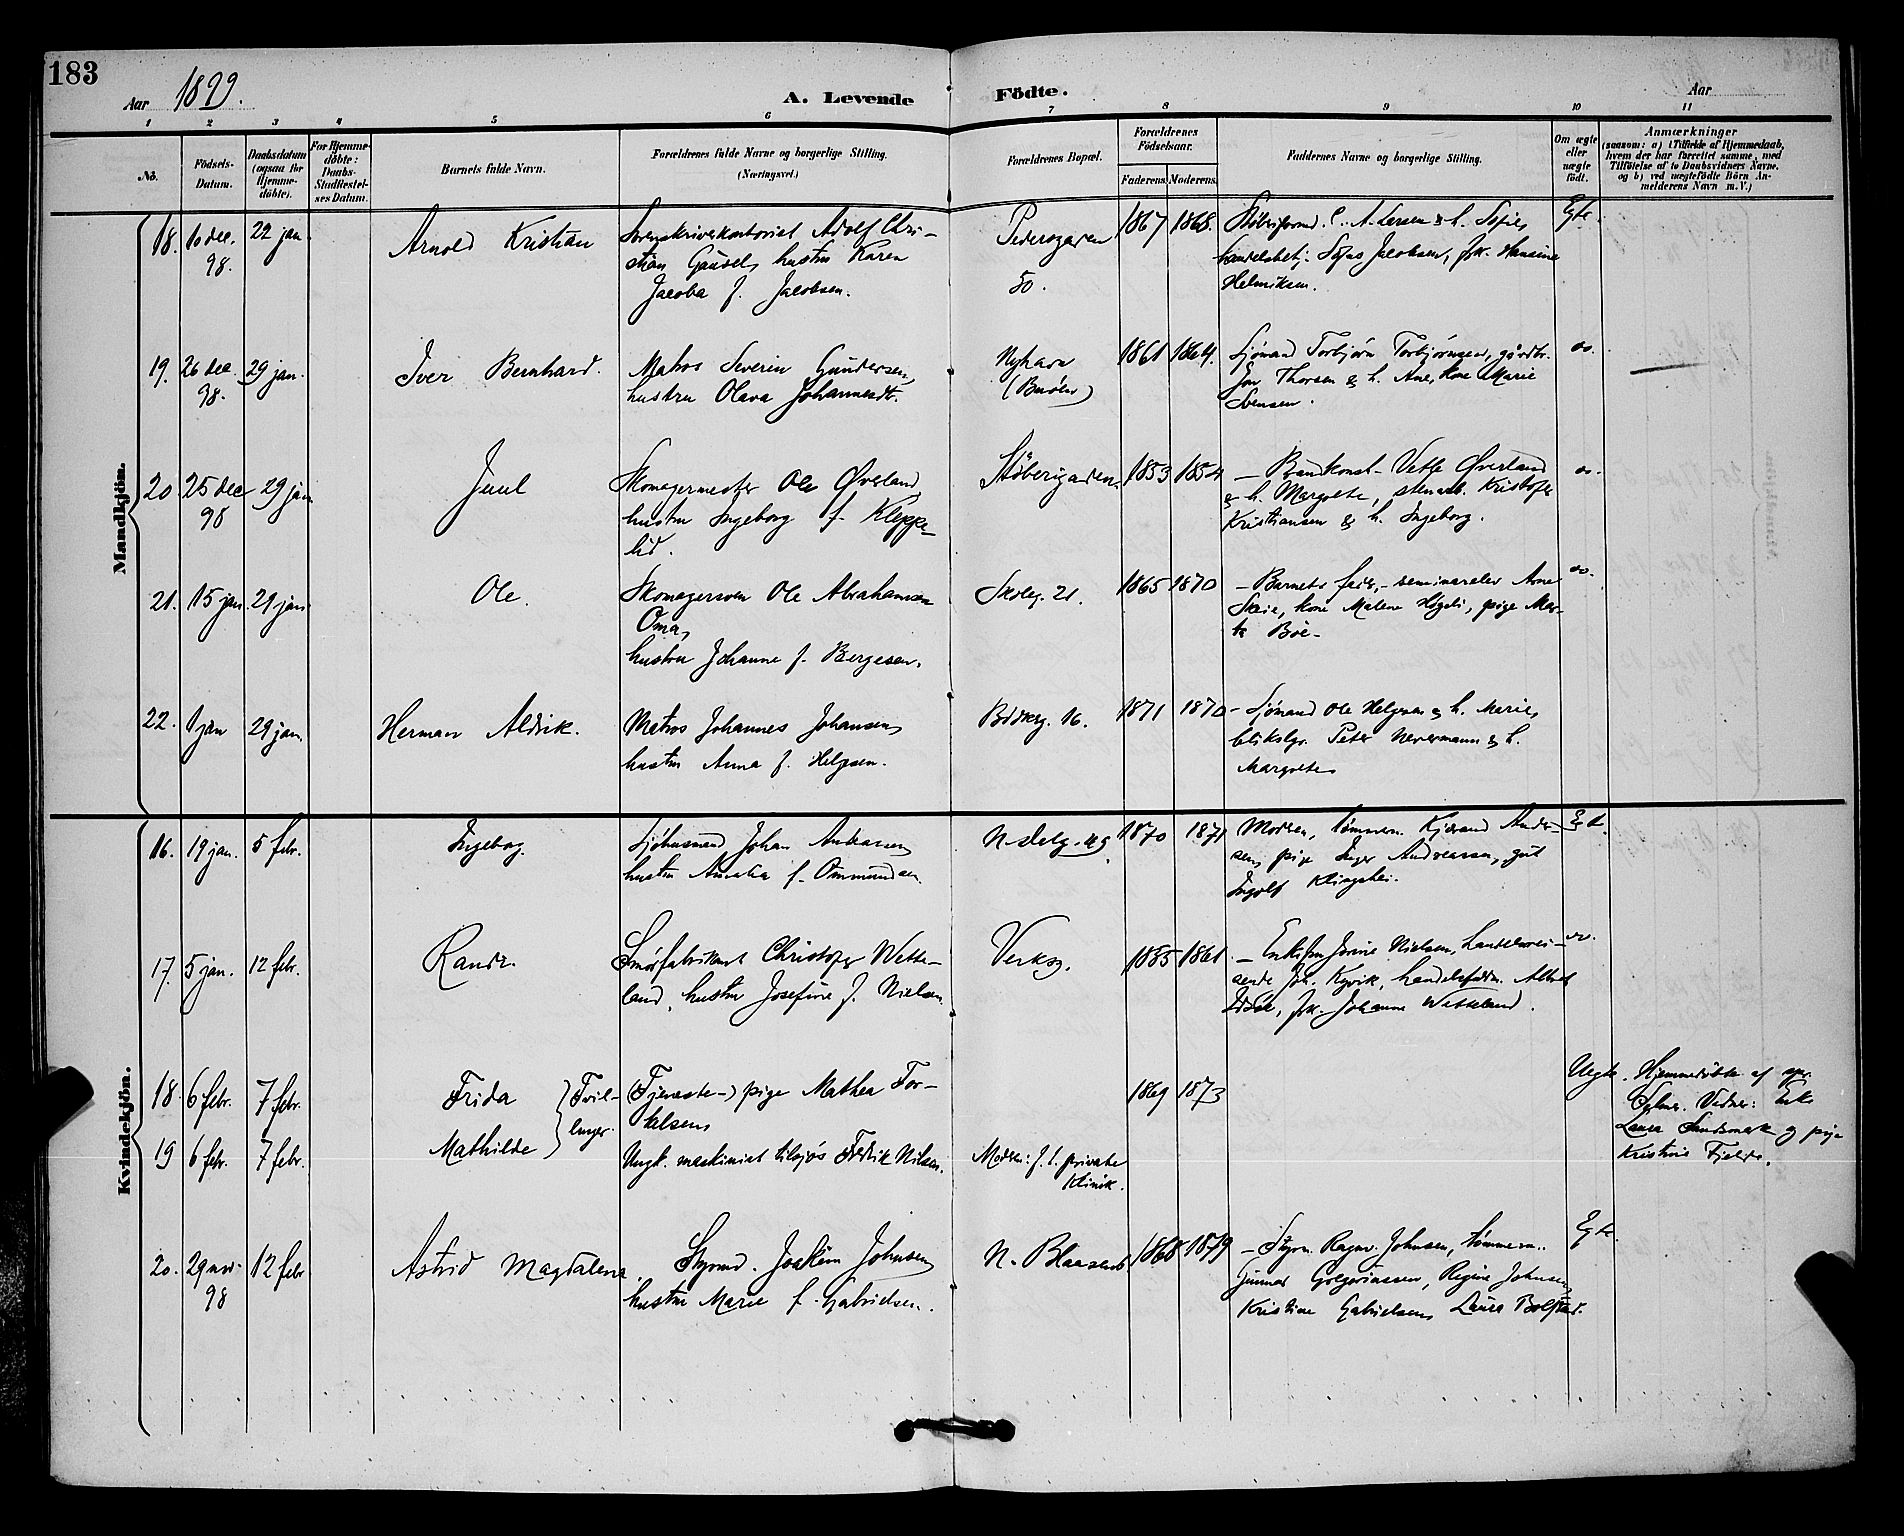 183
Aar 1899.
A. Levende Födte.
Aar
1 2 3 4 5 6 7 8 9 10 11
No.
Födsels-Datum.
Daabsdatum (ogsaa for Hjemme-döbte).
For Hjemme-döbte: Daabs-Stadfæstel-ses Datum.
Barnets fulde Navn.
Forældrenes fulde Navne og borgerlige Stilling. (Næringsvei.)
Forældrenes Bopæl.
Forældrenes Födselsaar.
Faderens. Moderens.
Faddernes Navne og borgerlige Stilling.
Om ægte eller uægte födt.
Anmærkninger
(saasom: a) i Tilfælde af Hjemmedaab, hvem der har forrettet samme, med Tilföielse af to Daabsvidners Navne, og b) ved uægtefödte Börn An-melderens Navn m. V.)
Mandkjön.
18. 10 dec. 98. 22 jan.
Arnold Kristian
Sorenskriverkontorist Adolf Chri-
stian Gausel, hustru Karen
Jacoba f. Jacobsen.
Pedersgaden
50.
1867 1868.
C. A. Larsen & h. Sofie,
handelsbetj. Sofus Jacobsen, frk. Hansine
Helmiksen.
Egte.
19. 26 dec. 98. 29 jan.
Iver Bernhard.
Matros Severin Gundersen,
hustru Olava Johannesdt.
Nyhavn
(Buöen)
1861 1864.
Sjömand Torbjörn Torbjörnsen, gårdbr.
Thorsen & h. Ane, kone Marie
Svensen.
do.
20 25 dec 98 29 jan
Juul
Skomagermester Ole Överland
hustru Ingeborg f. Kleppe-
lid.
Stöberigaden.
1853 1854
– Brandkonst. Vetle Överland
& h. Margrete, stenarb. Kristofer
Kristiansen & h. Ingeborg.
do.
21. 15 jan. 29 jan.
Ole.
Skomagersven Ole Abrahamsen
Oma,
hustru Johanne f. Bergesen.
Skoleg. 21.
1865 1870
– Barnets fader, – seminarelev Arne
Skeie, kone Malene Högeli, pige Mar-
te Böe –
do.
22. 1 jan 29 jan.
Herman Aldrik.
Matros Johannes Johansen,
hustru Anna f. Helgesen.
Bödkerg. 16.
1871 1870
– Sjömand Ole Helgesen & h. Marie,
blikslgr. Peter Nevermann & h.
Margrete
Kvindekjön.
16. 19 jan. 5 febr.
Ingeborg.
Sjöhusmand Johan
hustru Amalia f. Ommundsen.
1870 1871
Moderen, tömmerm. Kjerand Ander-
sen, pige Inger Andreassen, gut
Ingolf Klingshei.
17. 5 jan. 12 febr.
Randi.
Smörfabrikant Christofer Wette-
land, hustru Josefine f. Nielsen.
Verksg.
1855 1861
– Enkefru Jorine Nielsen, handelsrei-
sende Joh. Kyvik, handelsfuldm. Alfred
frk. Johanne Wetteland.
do.
18. 6 febr. 7 febr.
Frida
19 6 febr. 7 febr.
Mathilde
Tvil-
linger.
(Tjeneste-) pige Mathea Tor-
kelsen,
Ungk. maskinist tilsjös Fredrik Nilsen.
Moderen: f. t. private
klinik.
1869 1873
Uegte.
Hjemmedöbte af
Vidner: Enke
Laura Sandsmark og pige
Kristine Fjelde.
20. 29 nov. 98 12 febr
Astrid Magdalena.
Styrmd. Joakim Johnsen,
hustru Marie f. Gabrielsen.
N. Blaasenb.
1868 1879
– Styrm. Ragnv. Johnsen, tömmerm.
Gunnar Gregoriussen, Regine Johnsen,
Kristine Gabrielsen, Laura Bolstad.
Egte.